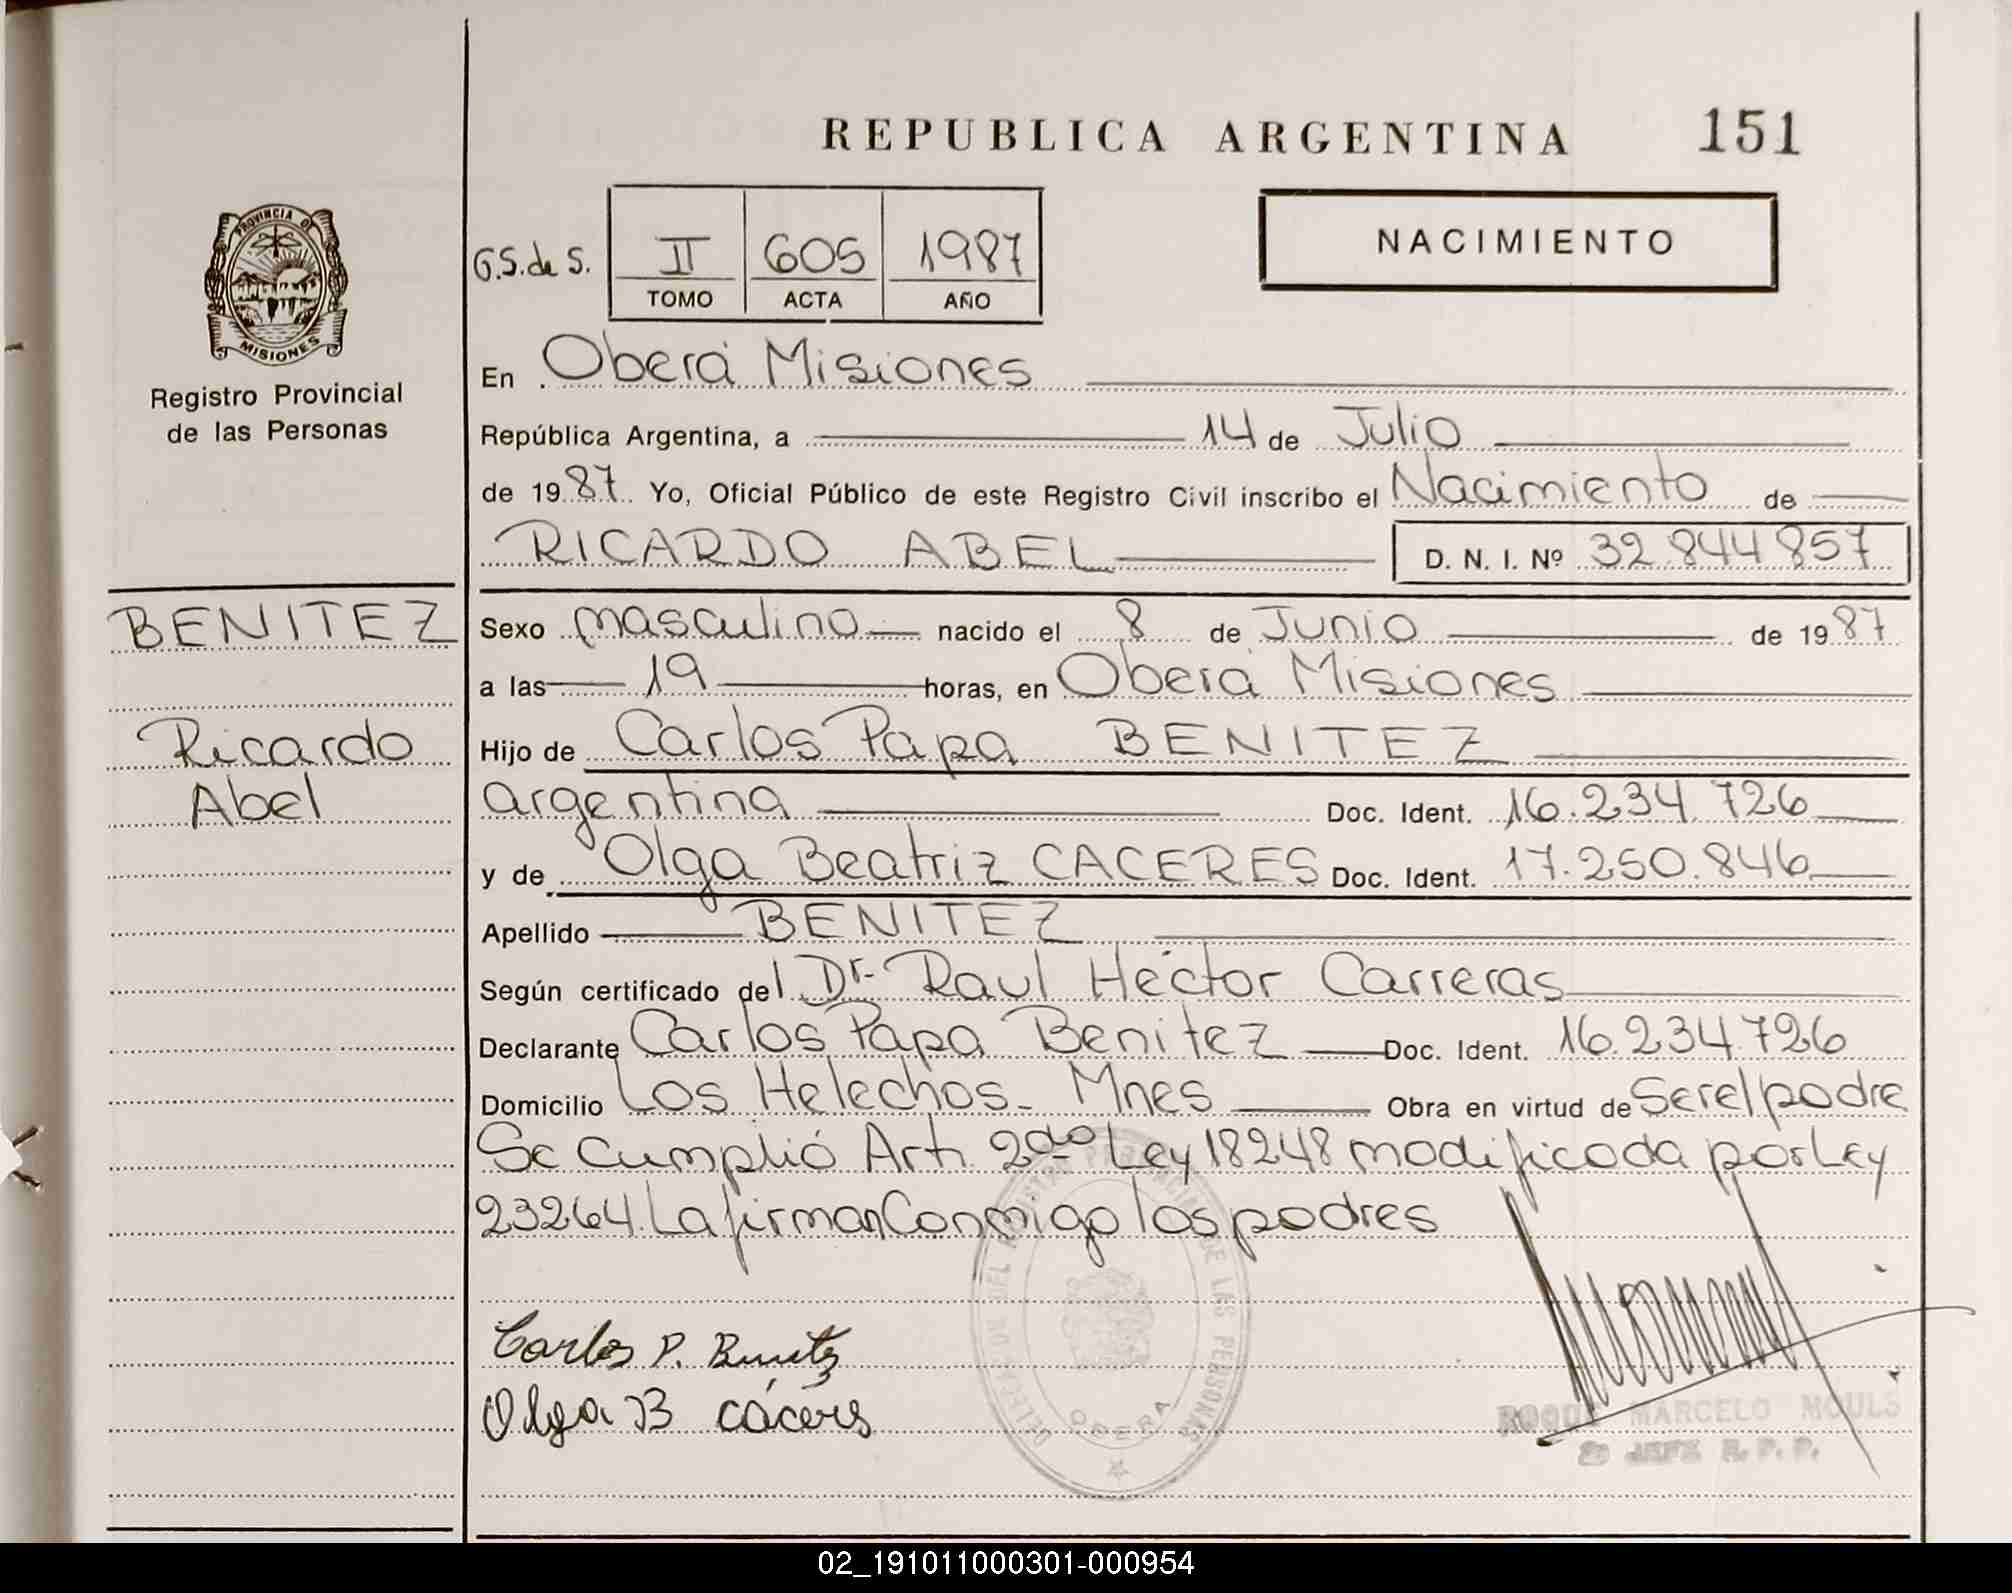 REPUBLICA ARGENTINA 151
NACIMIENTO
G.S. de S. II 605 1987
TOMO ACTA AÑO
PROVINCIA DE
MISIONES
Registro Provincial
de las Personas
En Oberá Misiones
República Argentina, a 14 de Julio
de 1987 Yo, Oficial Público de este Registro Civil inscribo el Nacimiento de
RICARDO ABEL D. N. I. Nº 32.844.857
BENITEZ
Ricardo
Abel
Sexo masculino nacido el 8 de Junio de 1987
a las 19 horas, en Oberá Misiones
Hijo de Carlos Papa BENITEZ
argentina Doc. Ident. 16.234.726
y de Olga Beatriz CACERES Doc. Ident. 17.250.846
Apellido BENITEZ
Según certificado del Dr. Raul Héctor Carreras
Declarante Carlos Papa Benitez Doc. Ident. 16.234.726
Domicilio Los Helechos - Mnes Obra en virtud de Ser el padre
Se Cumplió Art. 2do Ley 18248 modificada por Ley
23264. La firman Conmigo los padres
Carlos P. Benitez
Olga B cáceres
DELEGACION DEL REGISTRO PROVINCIAL DE LAS PERSONAS
OBERA
ROQUE MARCELO MOULS
2º JEFE R. P. P.
02_191011000301-000954